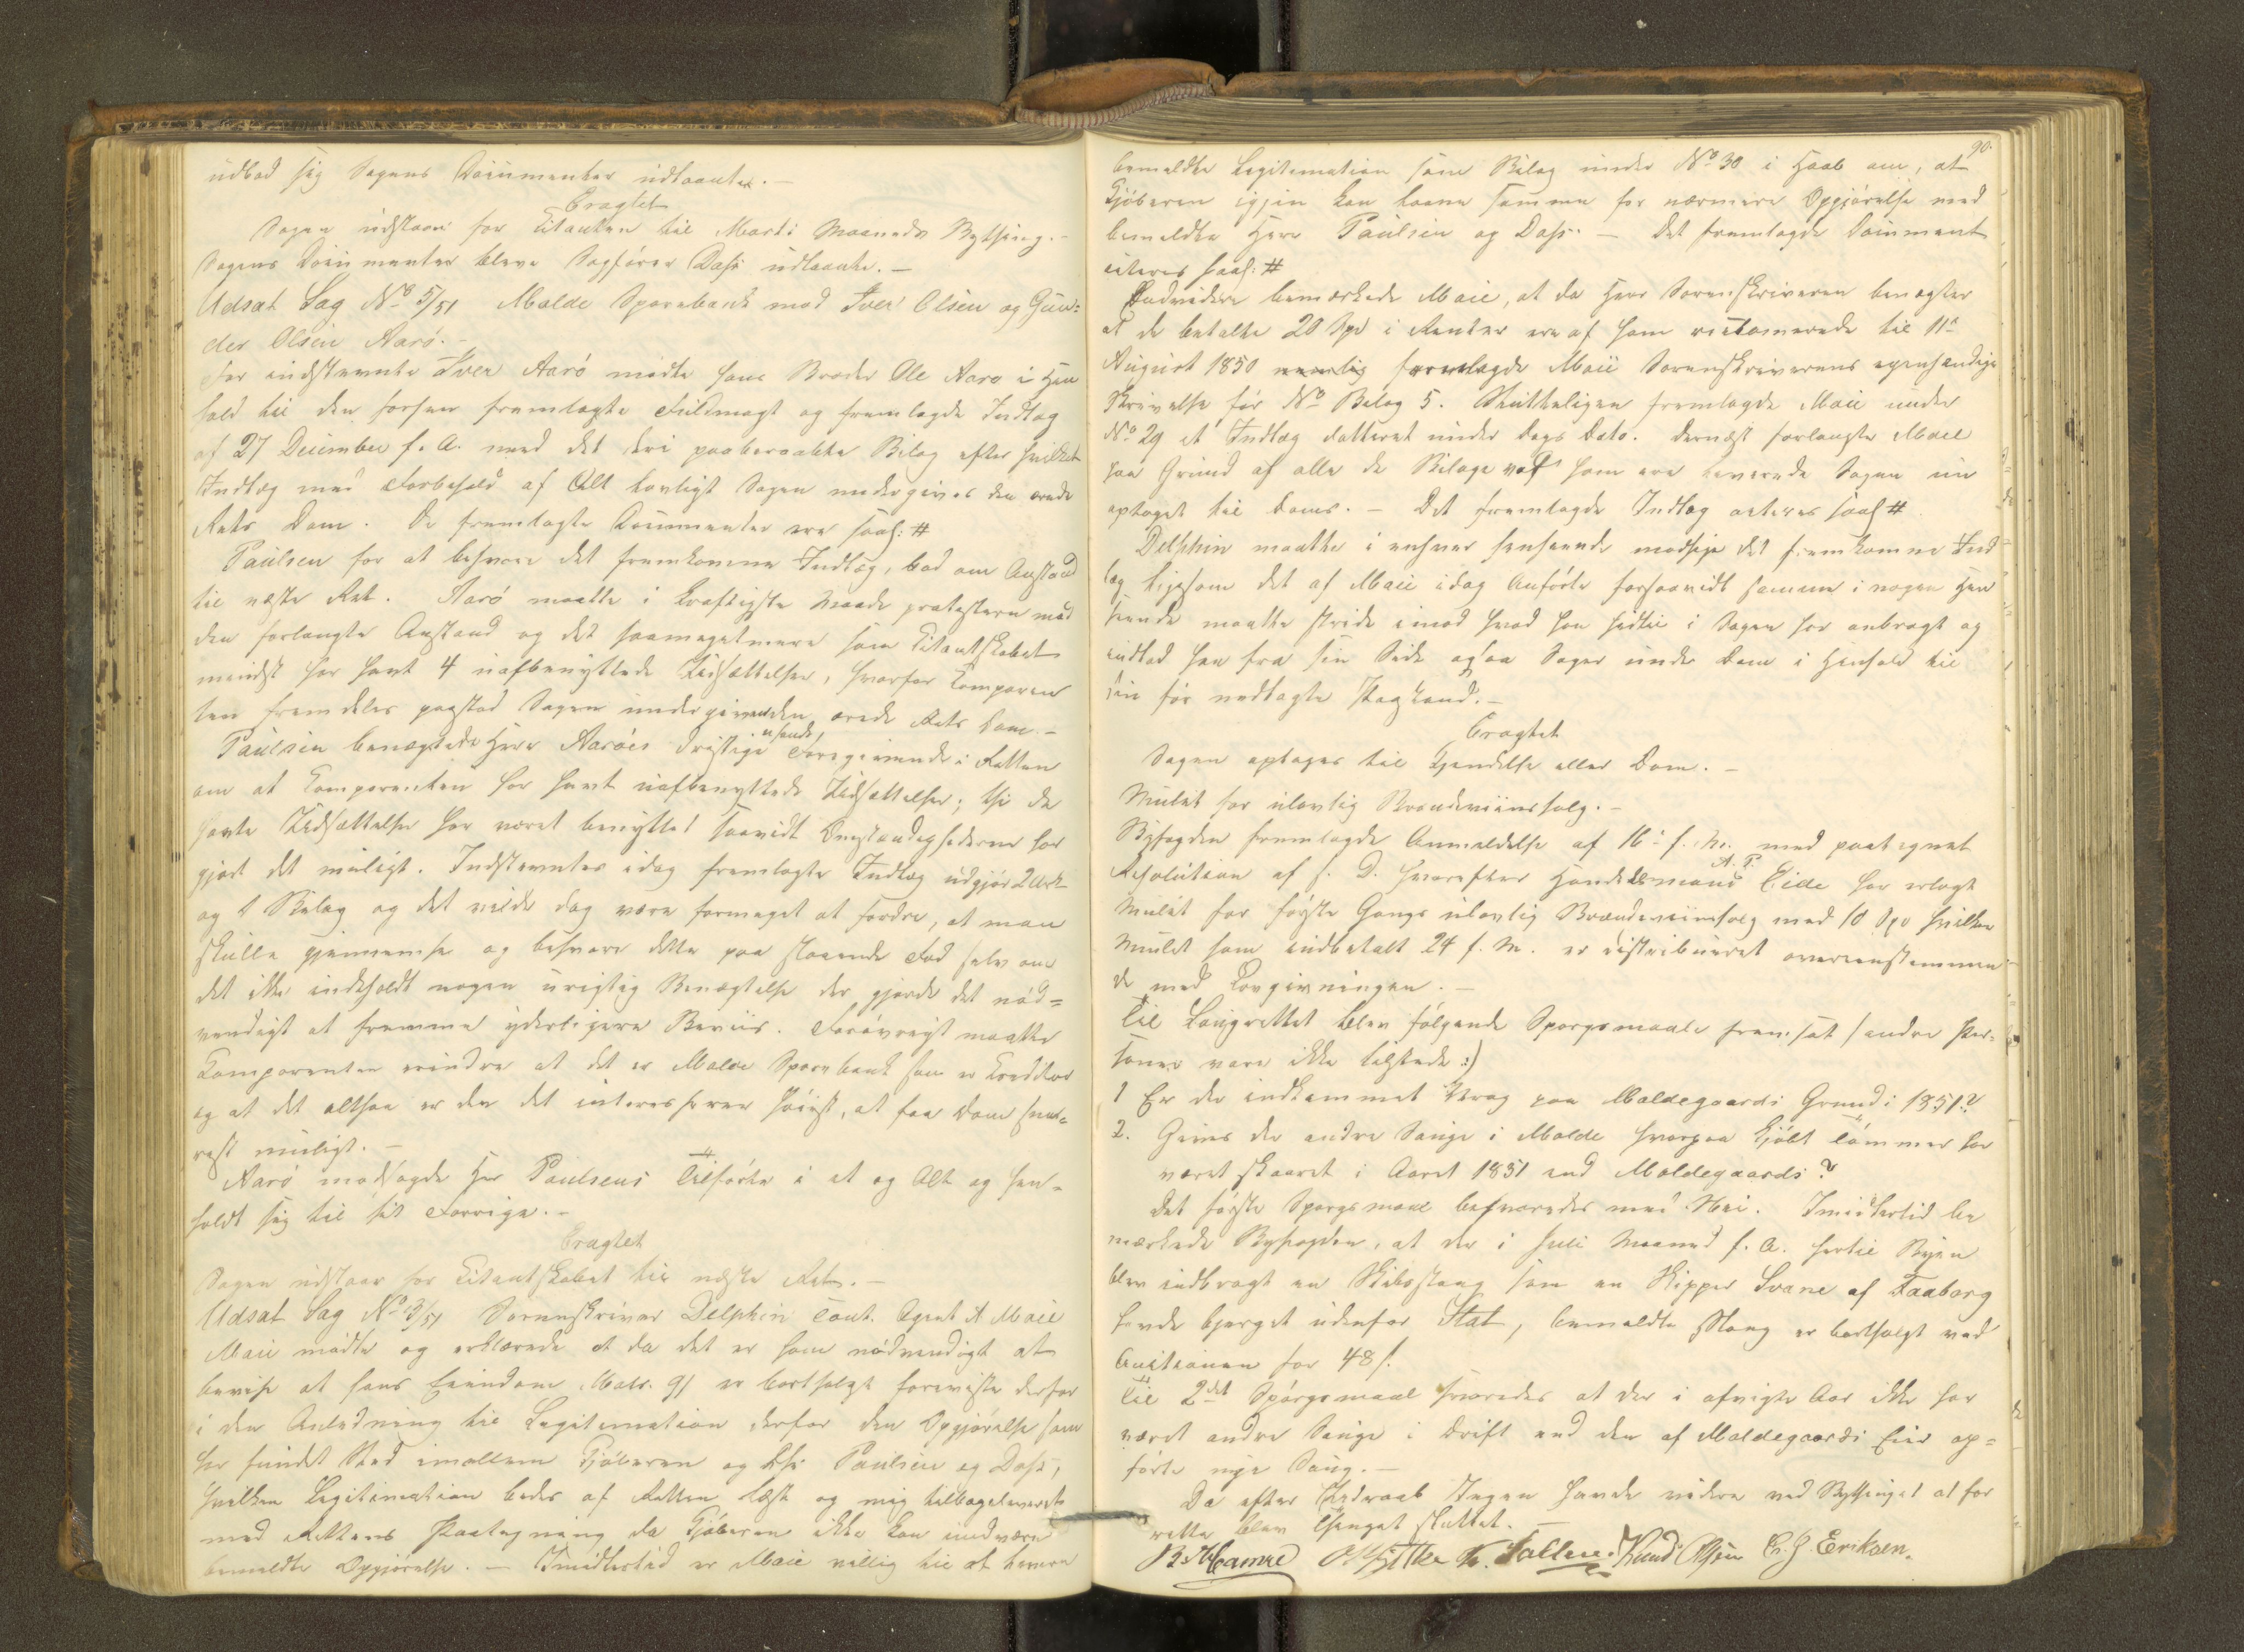 udbad sig Sagens Documenter udlaante. —
Eragtet
Sagen udstaar for Citanten til Marts Maaneds Bything. —
Sagens Documenter bleve Sagfører Dass udlaante. —
Udsat Sag No 5/51 Molde Sparebank mod Iver Olsen og Gun-
der Olsen Aarö. —
For indstevnte Iver Aarö mødte hans Broder Ole Aarö i Hen
hold til den forhen fremlagte Fuldmagt og fremlagde Indlæg
af 27 December f. A. med det deri paaberaabte Bilag efter hvilket
Indlæg med Forbehold af Alt lovligt Sagen undergives den ærede
Rets Dom. De fremlagte Documenter ere saal: #
Paulsen for at besvare det fremkomne Indlæg, bad om Anstand
til næste Ret. Aarö maatte i kraftigste Maade protestere mod
den forlangte Anstand og det saameget mere som Citantskabet
mindst har havt 4 uafbenyttede Udsættelser, hvorfor Comparen
ten fremdeles paastod Sagen undergiven den ærede Rets Dom. —
Paulsen benægtede Herr Aaröes dristige usande Foregivende i Retten
om at Comparenten har havt uafbenyttede Udsættelser; thi de
havte Udsættelser har været benyttet saavidt Omstændighederne har
gjort det muligt. Indstevntes idag fremlagte Indlæg udgjør 2 Ark
og 1 Bilag og det vilde dog være formeget at fordre, at man
skulle gjennemse og besvare dette paa staaende Fod selv om
det ikke indeholdt nogen urigtig Benægtelse der gjorde det nød-
vendigt at fremme yderligere Beviis. Forøvrigt maatte
Comparenten erindre at det er Molde Sparebank som er Creditor
og at det altsaa er den det interesserer høiest, at faa Dom snar-
est muligt. —
Aarö modsagde Hr Paulsens Tilførte i et og Alt og hen-
holdt sig til sit Forrige. —
Eragtet
Sagen udstaar for Citantskabet til næste Ret. —
Udsat Sag No 3/51 Sorenskriver Delphin Cont. Agent A Maie
Maie mødte og erklærede at da det er ham nødvendigt at
bevise at hans Eiendom Matr. 91 er bortsolgt foreviste derfor
i den Anledning til Legitimation derfor den Opgjørelse som
har fundet Sted imellem Kjøberen og Hr. Paulsen og Dass,
hvilken Legitimation bedes af Retten læst og mig tilbageleveret
med Rettens Paategning da Kjøberen ikke kan undvære
bemeldte Opgjørelse. — Imidlertid er Maie villig til at levere
90.
bemeldte Legitimation som Bilag under No 30 i Haab om, at
Kjøberen igjen kan laane samme for nærmere Opgjørelse med
bemeldte Herr Paulsen og Dass. — Det fremlagde Document
acteres saal: #
Endvidere bemærkede Maie, at da Herr Sorenskriveren benægter
at de betalte 20 Spd i Renter ere af ham reclamerede til 11te
August 1850 nemlig fremlagde Maie Sorenskriverens egenhændige
Skrivelse før No Bilag 5. Sluttelig fremlagde Maie under
No 29 et Indlæg datteret under Dags Dato. Dernæst forlangte Maie
paa Grund af alle de Bilage som ere leverede Sagen nu
optaget til Doms. — Det fremlagde Indlæg acteres saal #
Delphin maatte i enhver henseende modsige det fremkomne Ind
læg ligesom det af Maie idag Anførte forsaavidt samme i nogen Hen
seende maatte stride imod hvad han hidtil i Sagen har anbragt og
indlod han fra sin Side ogsaa Sagen under Dom i Henhold til
sin før nedlagte Paastand. —
Eragtet
Sagen optages til Kjendelse eller Dom. —
Mulct for ulovlig Brændeviinssalg. —
Byfogden fremlagde Anmeldelse af 16de f. M. med paategnet
Resolution af s. D. hvorefter Handelsmand A. P. Eide har erlagt
Mulct for første Gangs ulovlig Brændeviinssalg med 10 Spd hvilken
Mulct som indbetalt 24 f. M. er distribueret overeensstemmen
de med Lovgivningen. —
Til Laugrettet blev følgende Spørgsmaale fremsat (andre Per-
soner vare ikke tilstede :)
1 Er der indkommet Vrag paa Moldegaards Grund i 1851?
2. Gives der andre Sauge i Molde hvorpaa Kjøbt Tømmer har
været skaaret i Aaret 1851 end Moldegaards?
Det første Spørgsmaal besvaredes med Nei. Imidlertid be
mærkede Byfogden, at der i Juli Maaned f. A. hertil Byen
blev indbragt en Skibsstang som en Skipper Svane af Faaborg
havde bjerget udenfor Stat, bemeldte Stang er bortsolgt ved
Auctionen for 48 s.
Til 2det Spørgsmaal svaredes at der i afvigte Aar ikke har
været andre Sauge i Drift end den af Moldegaards Eier op-
førte nye Saug. —
Da efter Udraab Ingen havde videre ved Bythinget at for
rette blev Thinget sluttet. —
Knud Olsen E. G. Eriksen.